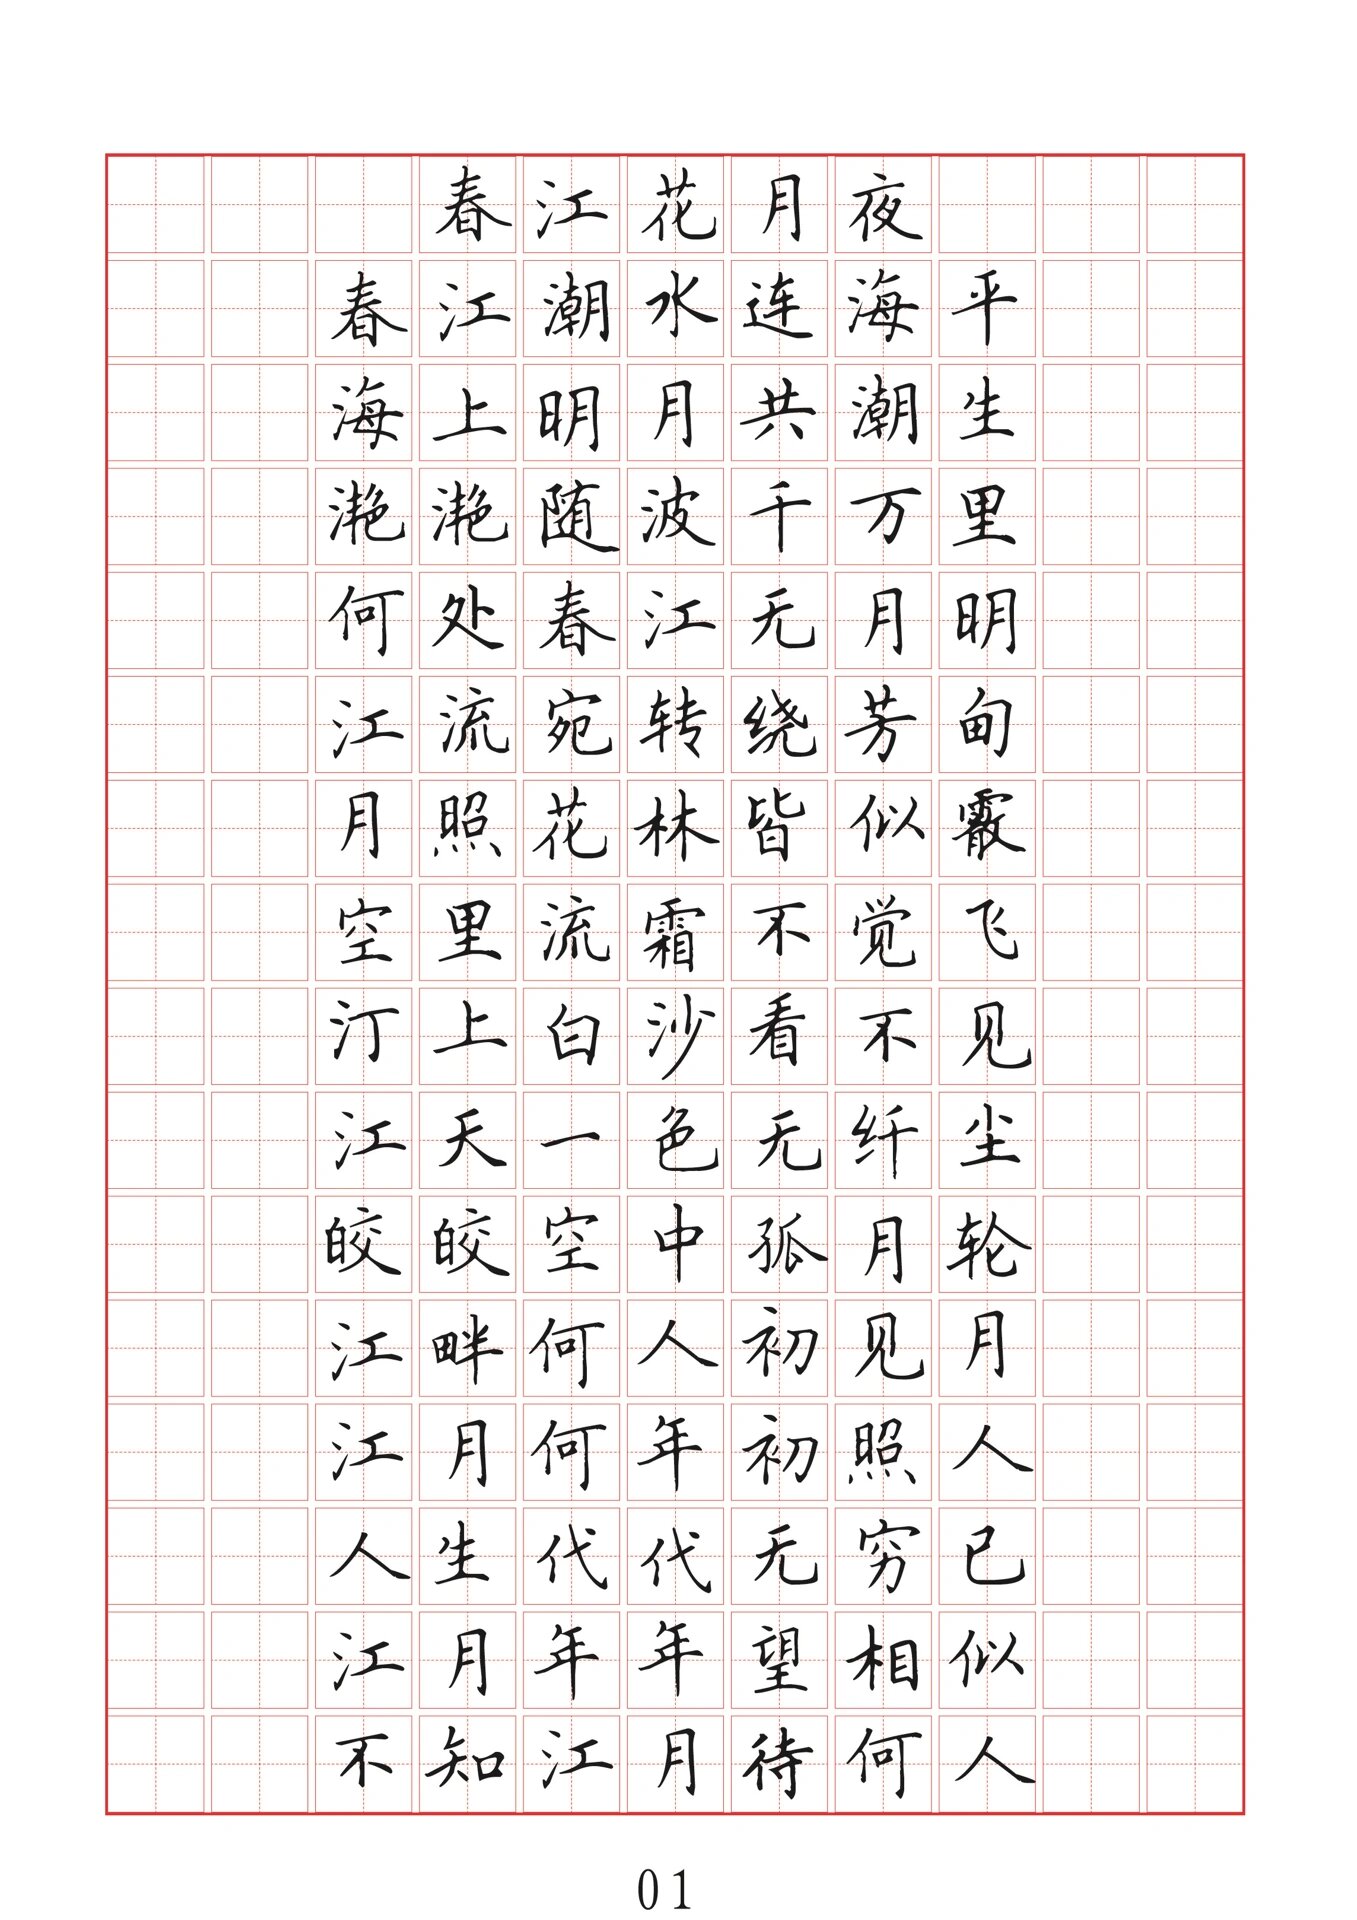 春江花月夜
春江潮水连海平
海上明月共潮生
滟滟随波千万里
何处春江无月明
江流宛转绕芳甸
月照花林皆似霰
空里流霜不觉飞
汀上白沙看不见
江天一色无纤尘
皎皎空中孤月轮
江畔何人初见月
江月何年初照人
人生代代无穷已
江月年年望相似
不知江月待何人
01